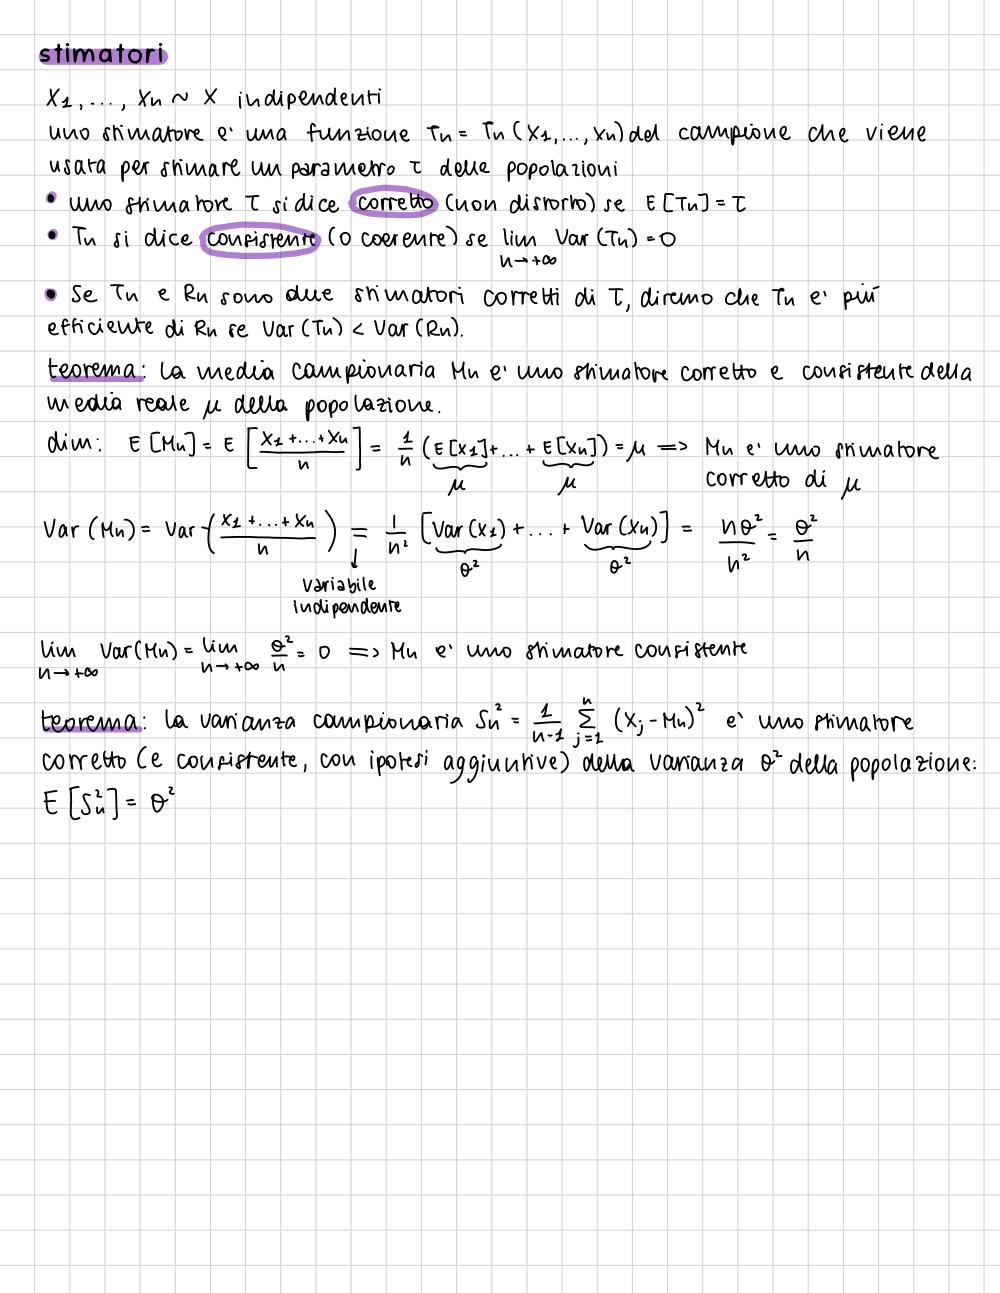 stimatori
X1, ..., Xn ~ X indipendenti
uno stimatore e' una funzione Tn = Tn (X1, ..., Xn) del campione che viene
usata per stimare un parametro τ delle popolazioni
• uno stimatore τ si dice corretto (non distorto) se E [Tn] = τ
• Tn si dice consistente (o coerente) se lim Var (Tn) = 0
n→+∞
• Se Tn e Rn sono due stimatori corretti di τ, diremo che Tn e' più
efficiente di Rn se Var (Tn) < Var (Rn).
teorema: la media campionaria Mn e' uno stimatore corretto e consistente della
media reale μ della popolazione.
dim: E [Mn] = E [(X1 + ... + Xn)/n] = 1/n (E [X1] + ... + E [Xn]) = μ => Mn e' uno stimatore
μ μ corretto di μ
Var (Mn) = Var ((X1 + ... + Xn)/n) = 1/n² [Var (X1) + ... + Var (Xn)] = nσ²/n² = σ²/n
↓ σ² σ²
Variabile
Indipendente
lim Var (Mn) = lim σ²/n = 0 => Mn e' uno stimatore consistente
n→+∞ n→+∞
teorema: la varianza campionaria Sn² = 1/(n-1) Σ_{j=1}^{n} (Xj - Mn)² e' uno stimatore
corretto (e consistente, con ipotesi aggiuntive) della varianza σ² della popolazione:
E [Sn²] = σ²